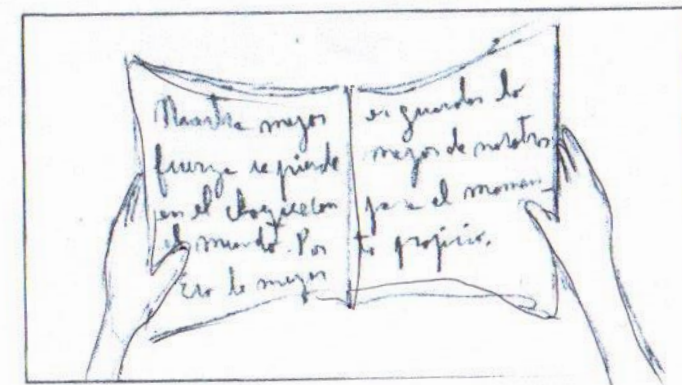 Nuestra mejor
fuerza se pierde
en el choque con
el mundo. Por
eso lo mejor
es guardar lo
mejor de nosotros
para el momen-
to propicio.